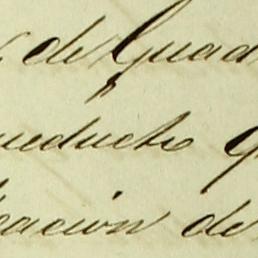 de Guad
ueducto q
cación de